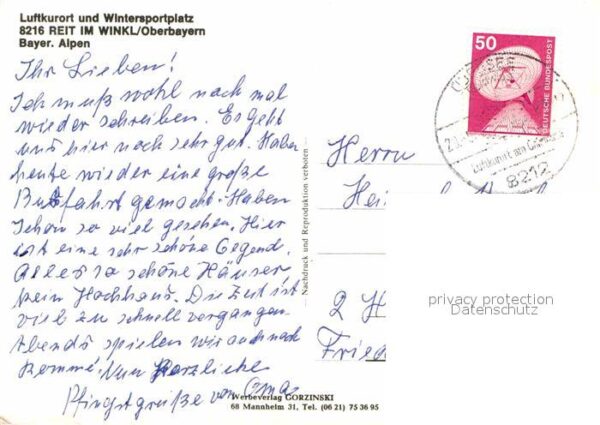 Luftkurort und Wintersportplatz
8216 REIT IM WINKL/Oberbayern
Bayer. Alpen
Ihr Lieben!
Ich muß wohl noch mal
wieder schreiben. Es geht
uns hier noch sehr gut. Haben
heute wieder eine große
Busfahrt gemacht. Haben
schon so viel gesehen. Hier
ist eine sehr schöne Gegend.
Alles so schöne Häuser
kein Hochhaus. Die Zeit ist
viel zu schnell vergangen.
Abends spielen wir auch noch
Rommé. Nun Herzliche
Pfingstgrüße von Oma
Nachdruck und Reproduktion verboten
Werbeverlag GORZINSKI
68 Mannheim 31, Tel. (06 21) 75 36 95
50
DEUTSCHE BUNDESPOST
Luftkurort am
8212
Herrn
Hei
2 H
Fried
privacy protection
Datenschutz